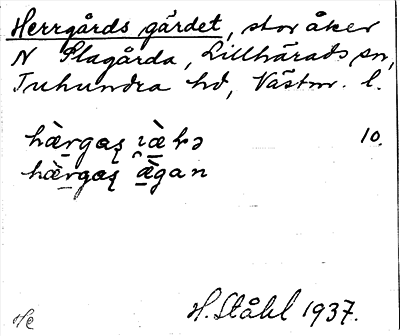 Herrgårds gärdet, stor åker
N Slagårda, Lillhärads sn,
Tuhundra hd, Västm. l.
hæ̀rgaʂ 10.
hæ̀rgaʂ æ̀gan
H. Ståhl 1937.